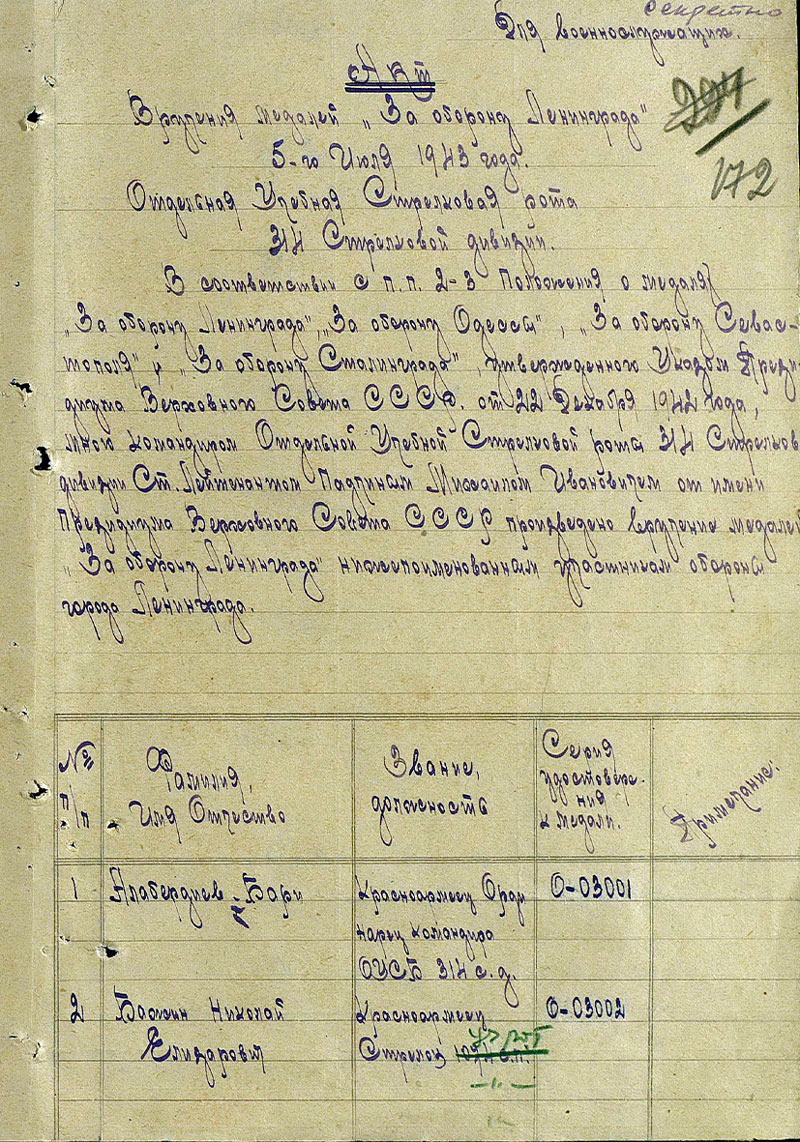 Секретно
Для военнослужащих.
Акт
Вручения медалей „За оборону Ленинграда"
294
172
5-го Июля 1943 года.
Отдельная Учебная Стрелковая рота
314 Стрелковой дивизии.
В соответствии с п.п. 2-3 Положения о медалях
„За оборону Ленинграда", „За оборону Одессы", „За оборону Севас-
тополя" и „За оборону Сталинграда", утвержденного Указом Прези-
диума Верховного Совета СССР. от 22 Декабря 1942 года,
мною командиром Отдельной Учебной Стрелковой роты 314 Стрелков
дивизии Ст. Лейтенантом Михаилом Ивановичем от имени
Президиума Верховного Совета СССР произведено вручение медалей
„За оборону Ленинграда" нижепоименованным участникам обороны
города Ленинграда.
№ п/п
Фамилия,
Имя Отчество
Звание,
должность
Серия
удостовере-
ния
к медали.
Примечание.
1 Алабердиев Бари Красноармеец Орди О-03001
нарец командира
ОУСБ 314 с.д.
2 Бажин Николай Красноармеец О-03002
Елизарович Стрелок
—"—